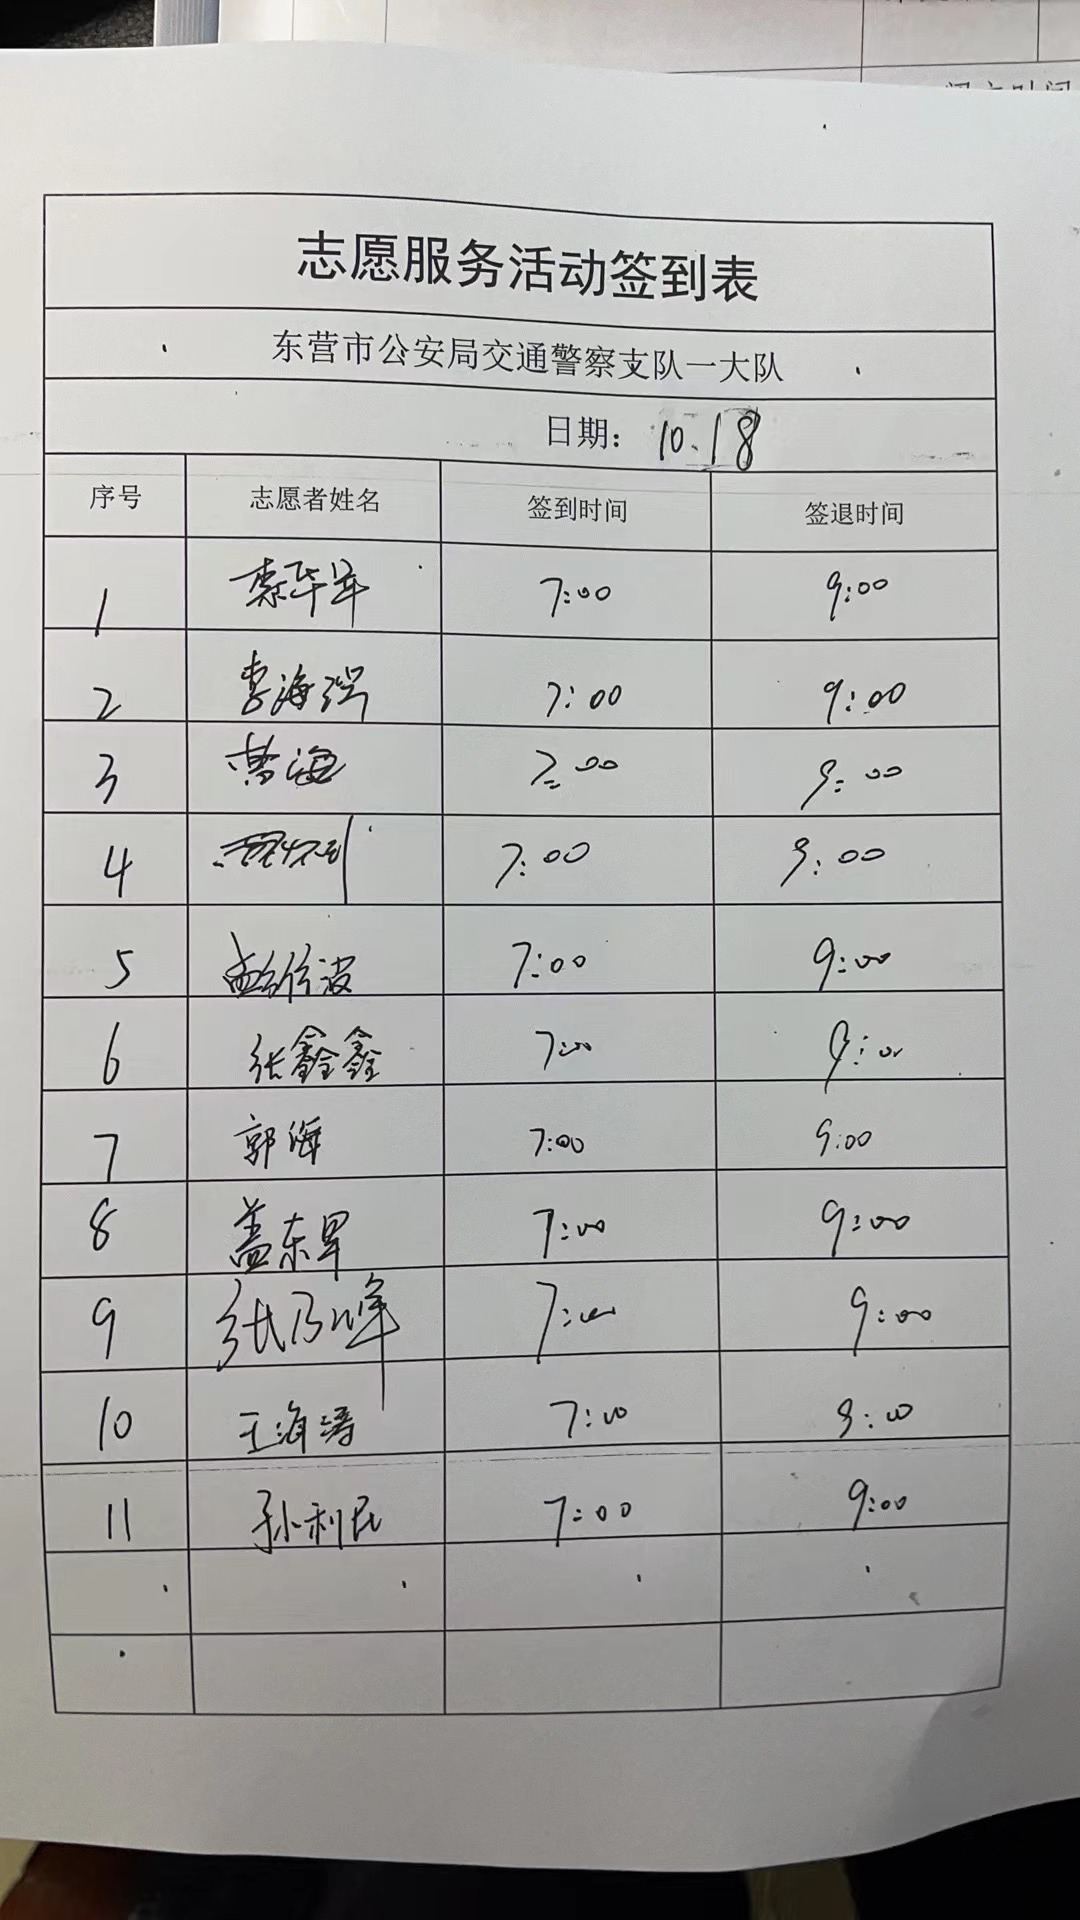 志愿服务活动签到表
东营市公安局交通警察支队一大队
日期： 10.18
序号 志愿者姓名 签到时间 签退时间
1 7:00 9:00
2 李海 7:00 9:00
3 海 7:00 9:00
4 7:00 9:00
5 孟维波 7:00 9:00
6 张鑫鑫 7:00 9:00
7 郭海 7:00 9:00
8 盖东 7:00 9:00
9 张乃峰 7:00 9:00
10 王海涛 7:00 9:00
11 孙利民 7:00 9:00